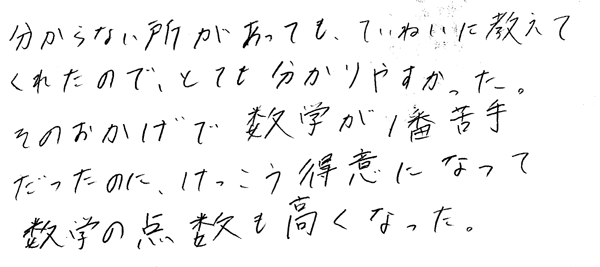 分からない所があっても、ていねいに教えて
くれたので、とても分かりやすかった。
そのおかげで数学が1番苦手
だったのに、けっこう得意になって
数学の点数も高くなった。